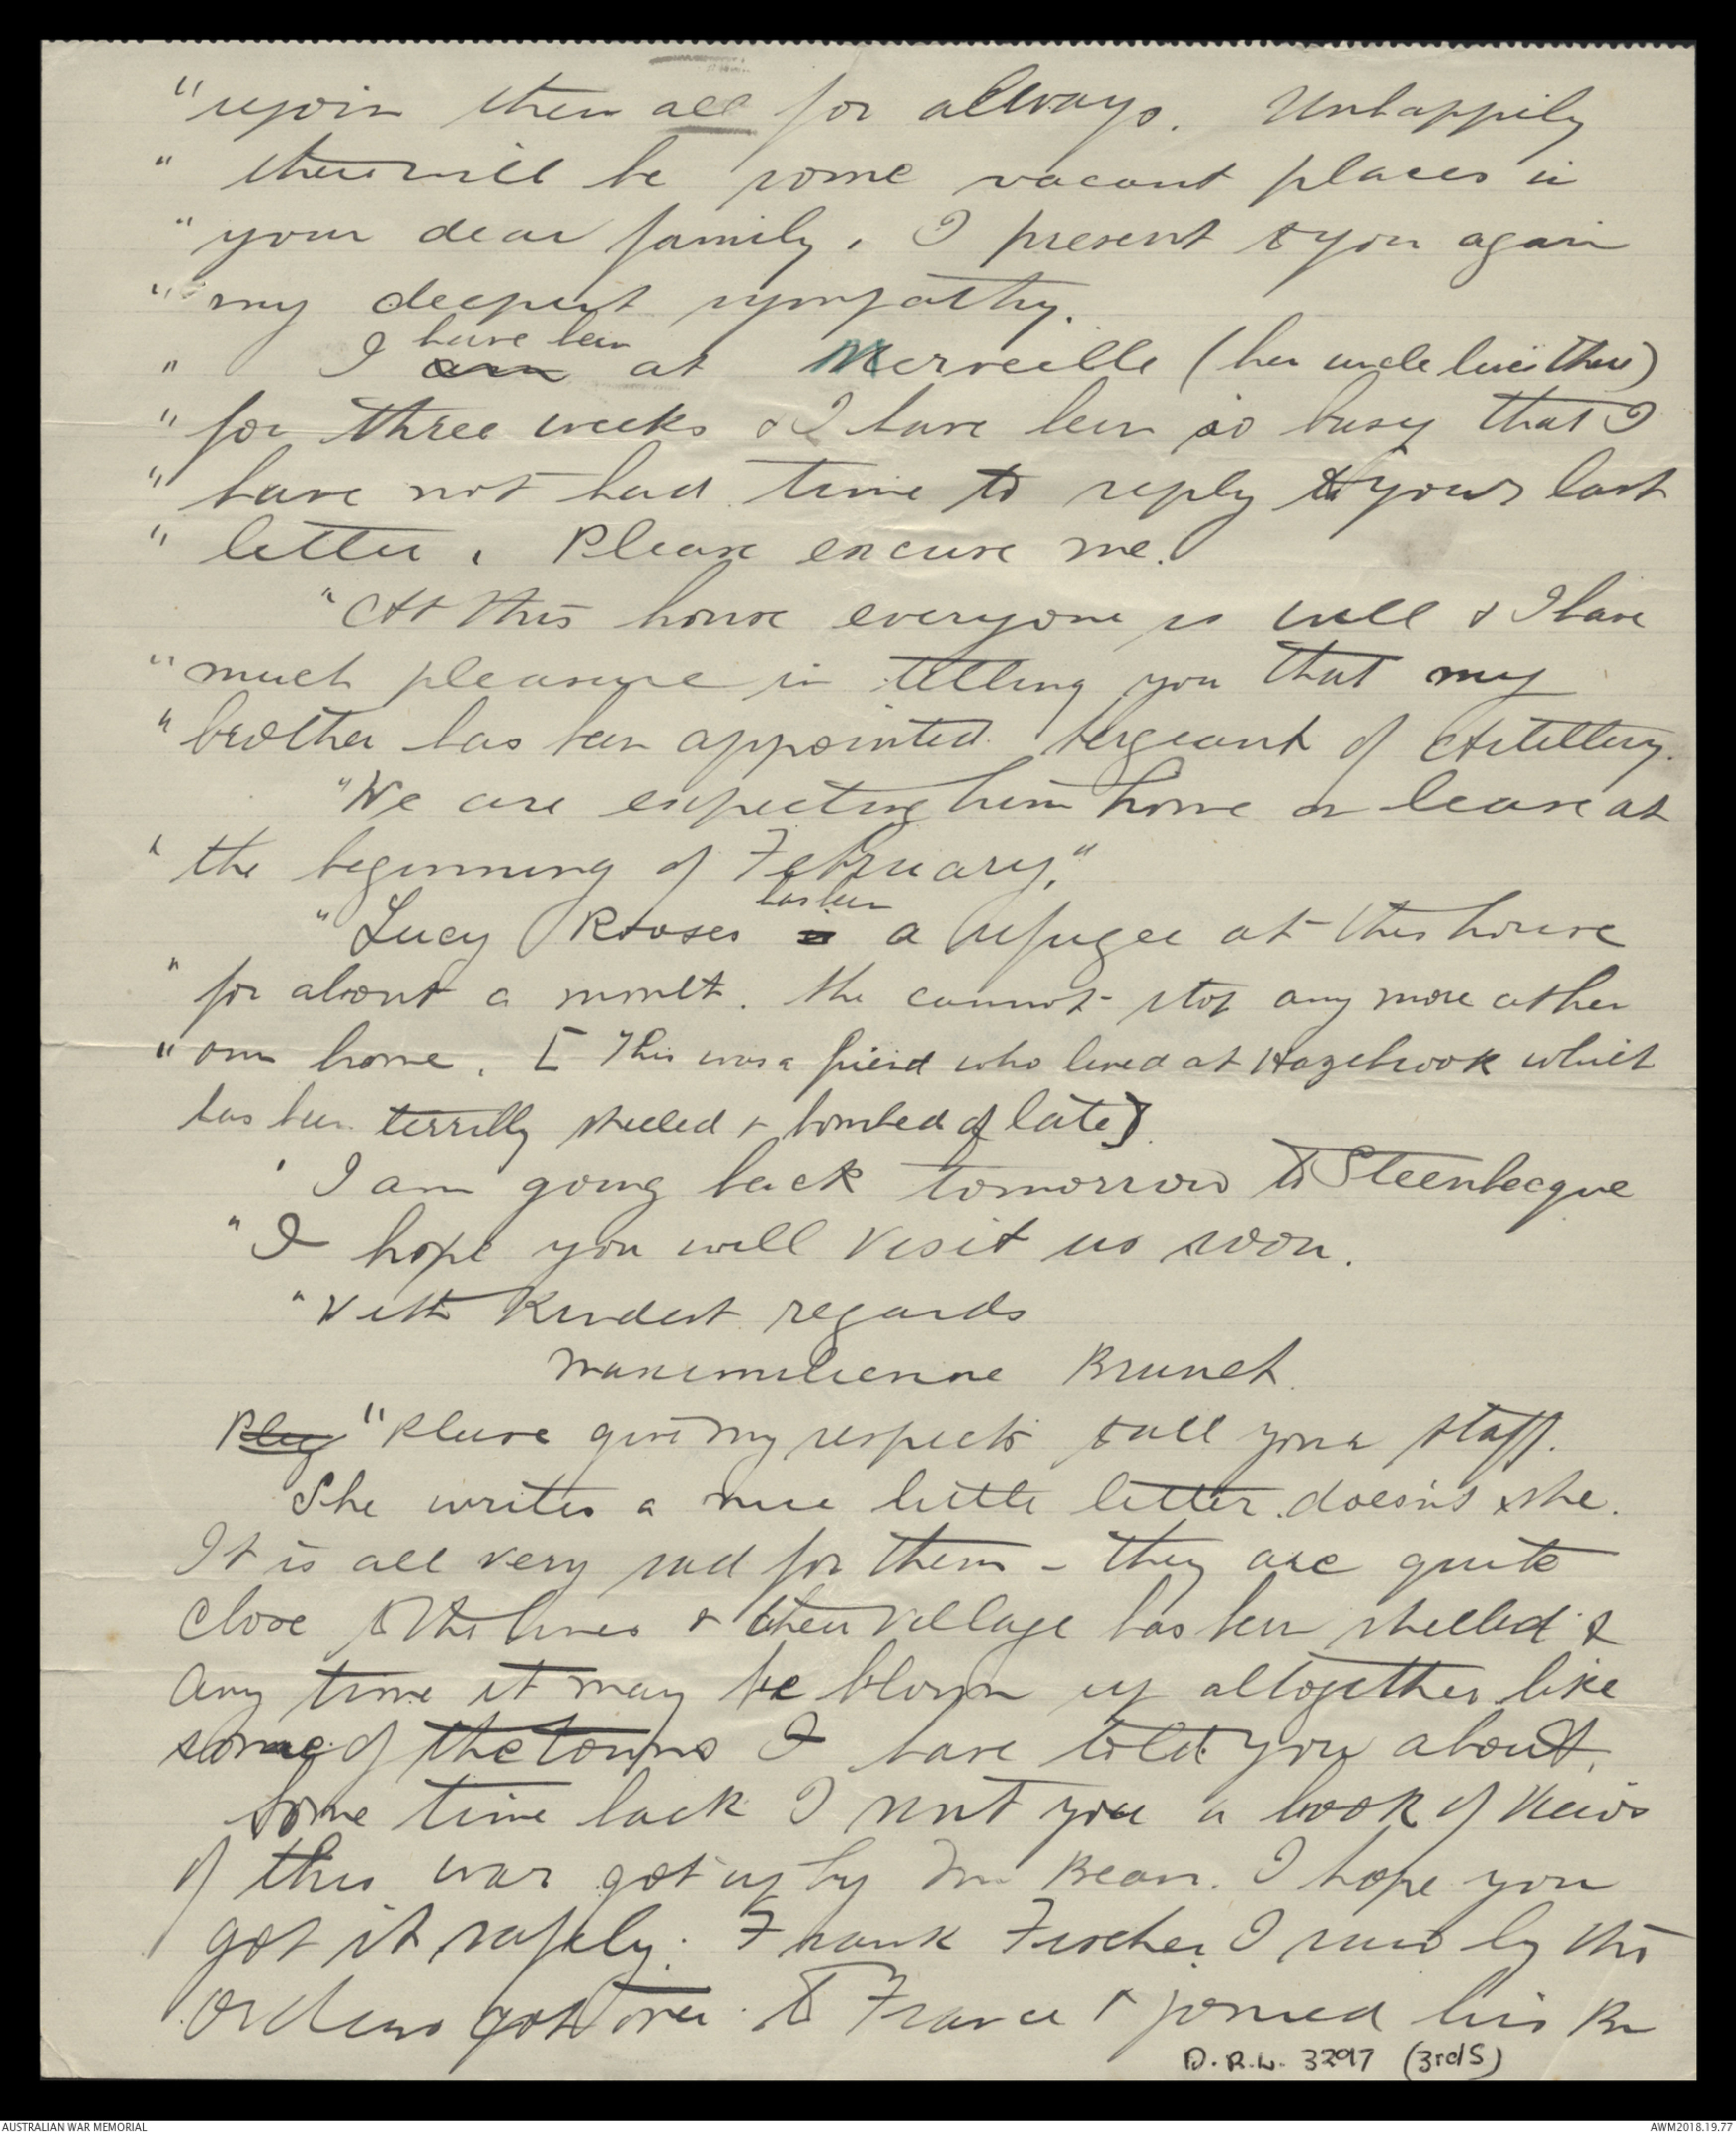 "rejoin them all for allways. Unhappily
" there will be some vacant places in
" your dear family. I present to you again
" my deepest sympathy.
" I am have been at Merveille (her uncle lives there)
" for three weeks & I have been so busy that I
" have not had time to reply to yours last
" letter. Please excuse me.
"At this house everyone is well & I have
" much pleasure in telling you that my
" brother has been appointed Sergeant of Artillery.
"We are expecting him home on leave at
" the beginning of February."
"Lucy Rooses is has been a refugee at this house
" for about a month. She cannot stop any more at her
" own home. [This was a friend who lived at Hazebrook which
has been terribly shelled & bombed of late].
' I am going back tomorrow to Steenbecque
" I hope you will visit us soon.
"With Kindest regards
Maximilienne Brunet.
"Please give my respects to all your staff.
She writes a nice little letter doesn't she.
It is all very sad for them - they are quite
close to the lines & their village has been shelled &
any time it may be blown up altogether like
some of the towns I have told you about.
Some time back I sent you a book of views
of this war got up by Mr Bean. I hope you
got it safely. Frank Fischer I saw by the
orders got over to France & joined his Bn
D.R.L. 3297 (3rd S)
AUSTRALIAN WAR MEMORIAL
AWM2018.19.77